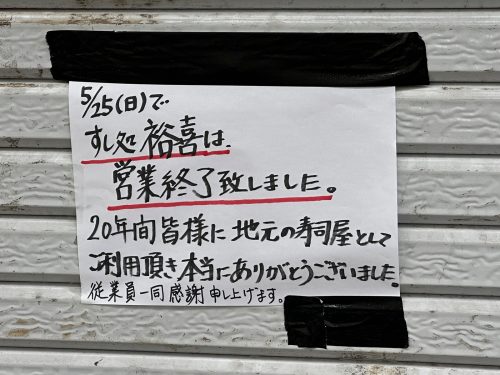 5/25(日)で
すし処 裕喜は、
営業終了致しました。
20年間皆様に地元の寿司屋として
ご利用頂き本当にありがとうございました。
従業員一同感謝申し上げます。